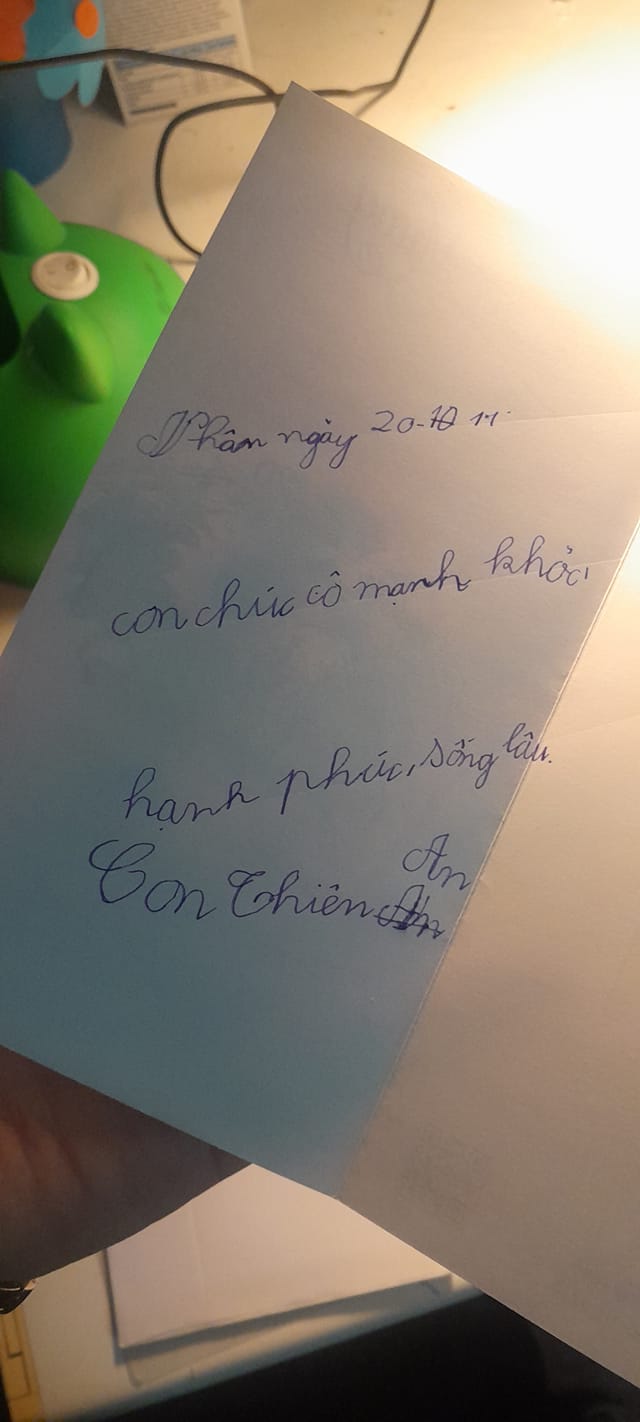 Nhân ngày 20-10 11
con chúc cô mạnh khỏe,
hạnh phúc, sống lâu.
Con Thiên An